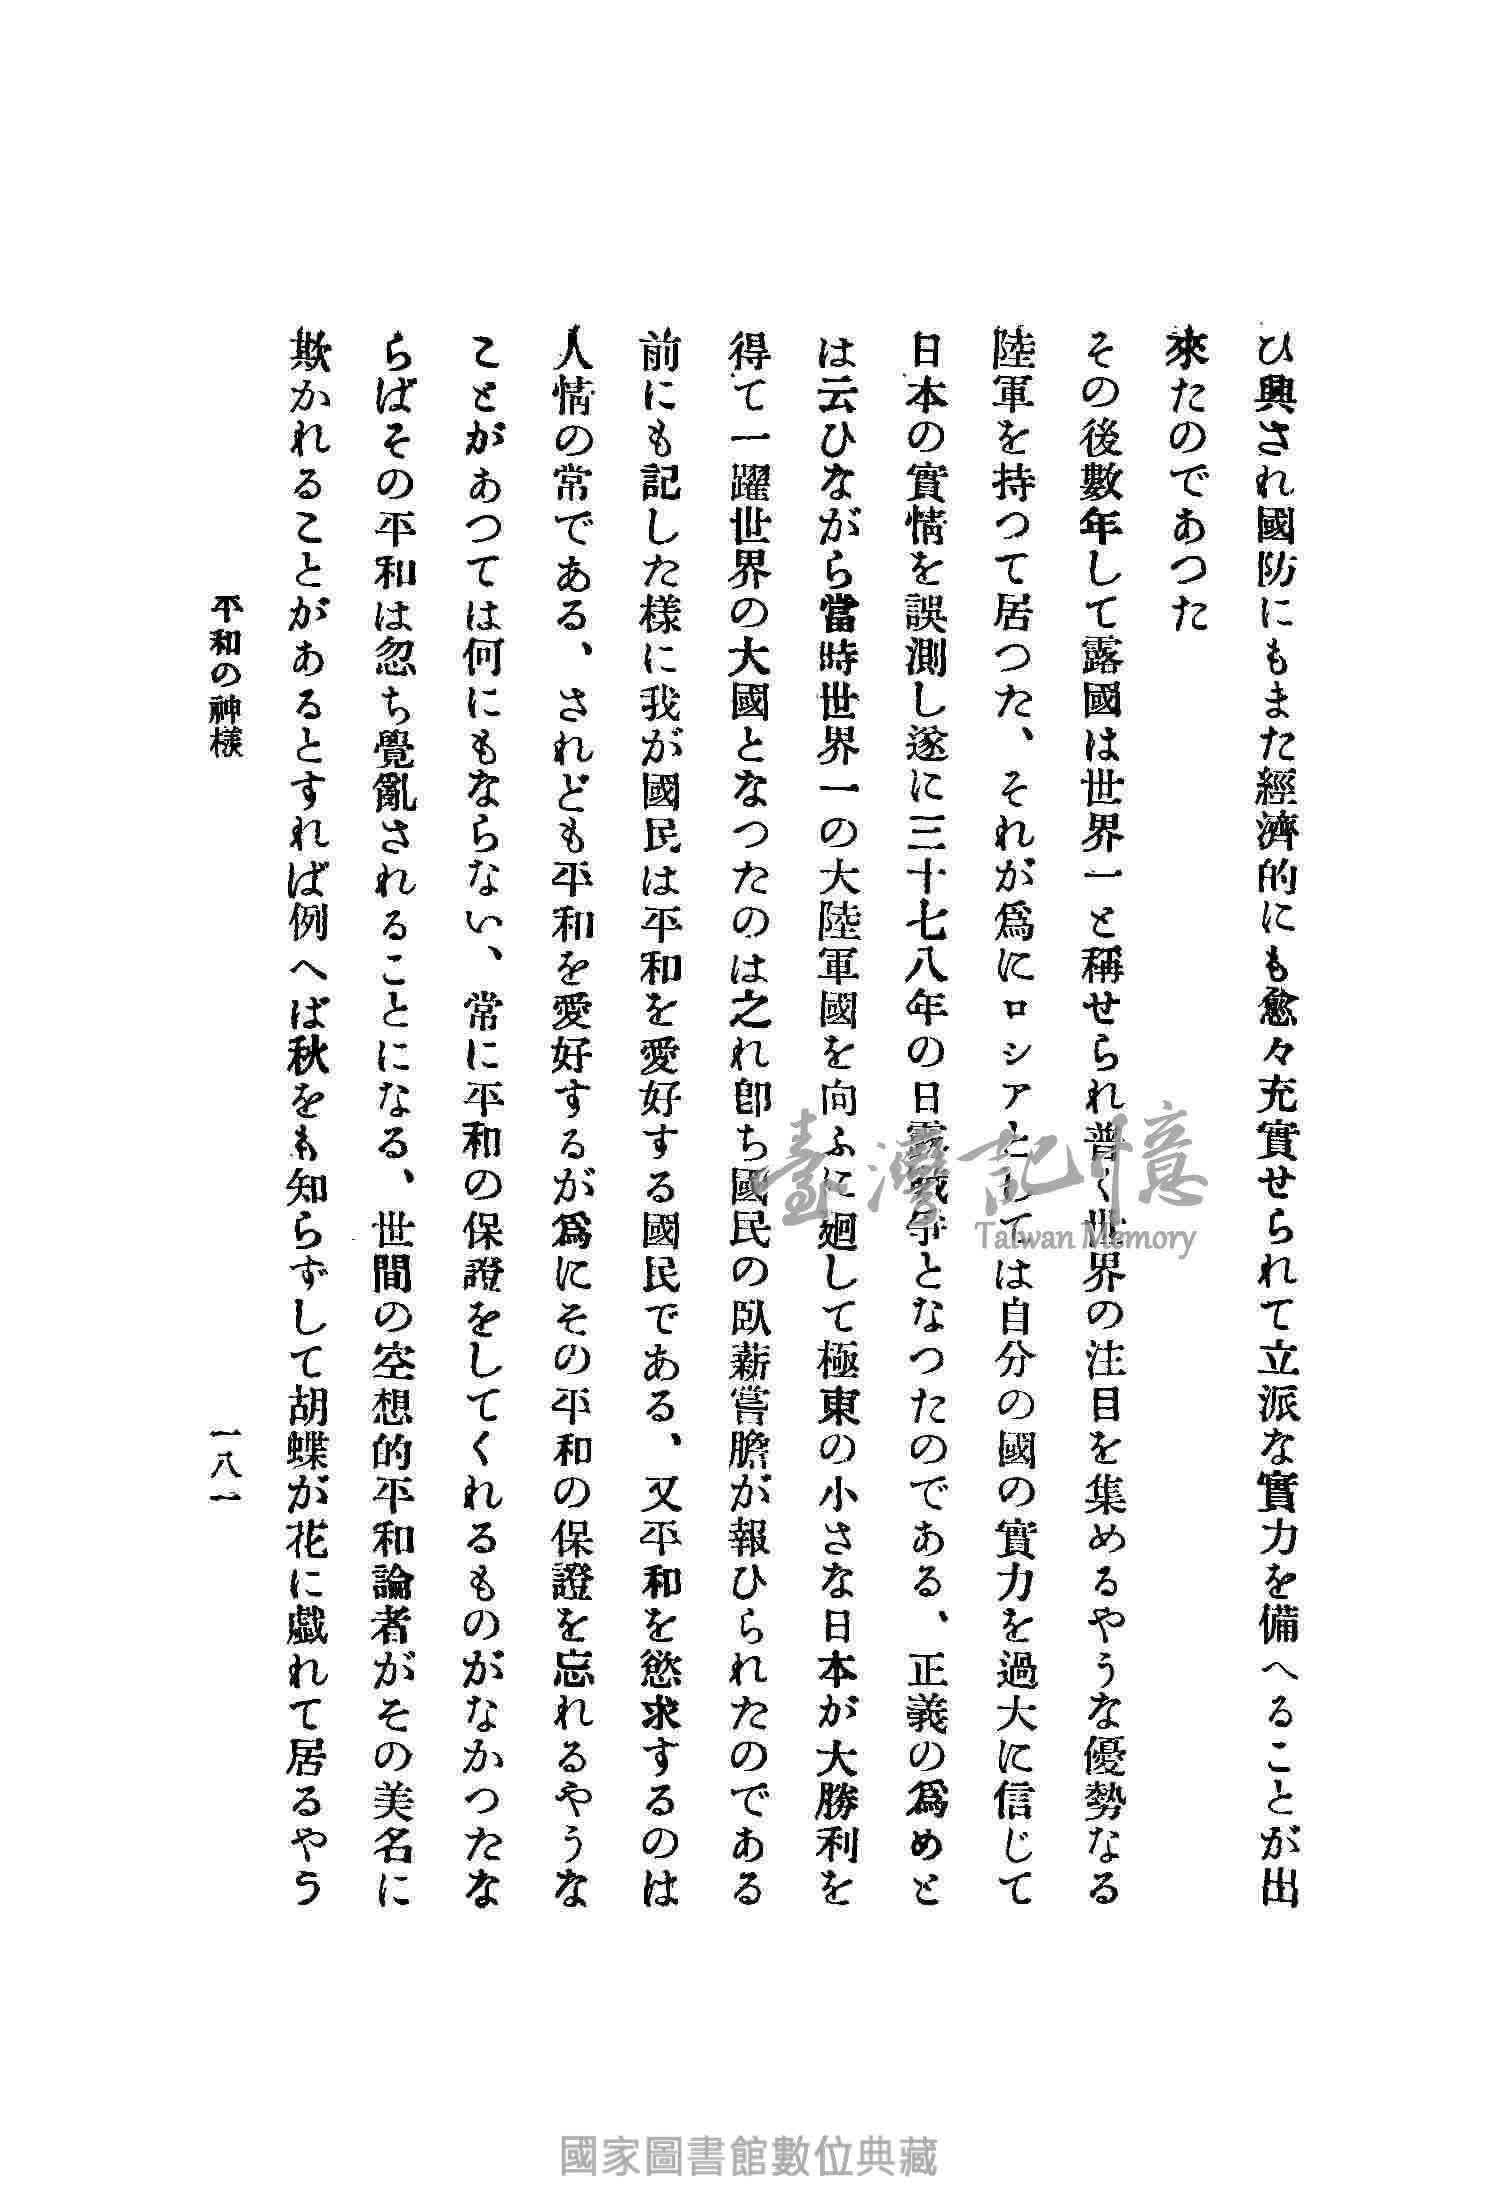 ひ興され國防にもまた經濟的にも愈々充實せられて立派な實力を備へることが出
來たのであつた
その後數年して露國は世界一と稱せられ普く世界の注目を集めるやうな優勢なる
陸軍を持つて居つた、それが爲にロシアとしては自分の國の實力を過大に信じて
日本の實情を誤測し遂に三十七八年の日露戰爭となつたのである、正義の爲めと
は云ひながら當時世界一の大陸軍國を向ふに廻して極東の小さな日本が大勝利を
得て一躍世界の大國となつたのは之れ卽ち國民の臥薪嘗膽が報ひられたのである
前にも記した樣に我が國民は平和を愛好する國民である、又平和を慾求するのは
人情の常である、されども平和を愛好するが爲にその平和の保證を忘れるやうな
ことがあつては何にもならない、常に平和の保證をしてくれるものがなかつたな
らばその平和は忽ち覺亂されることになる、世間の空想的平和論者がその美名に
欺かれることがあるとすれば例へば秋をも知らずして胡蝶が花に戯れて居るやう
平和の神樣
一八一
臺灣記憶
Taiwan Memory
國家圖書館數位典藏